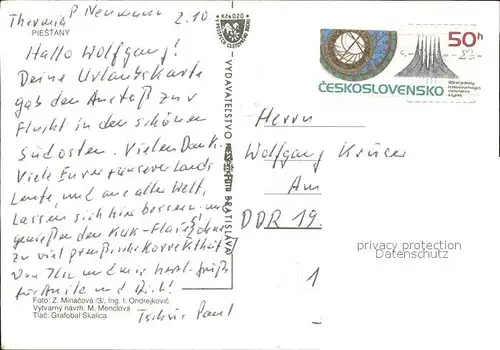 Thermia P Neumann 2.10
PIEŠŤANY
Hallo Wolfgang!
Deine Urlaubskarte
gab den Anstoß zur
Flucht in den schönen
Südosten. Vielen Dank.
Viele
Leute, und aus aller Welt,
lassen sich hier bessern und
genießen den KuK-Flair
zu viel preußische Korrektheit
Von und mir herzl. Grüße
für und Dich!
Foto: Z. Mináčová /3/, Ing. I. Ondrejkovič
Výtvarný návrh: M. Menclová
Tlač: Grafobal Skalica
Tschüs Paul
Kčs 0,20
VYDAVATEĽSTVO
BRATISLAVA
50h
ČESKOSLOVENSKO
Herrn
Wolfgang Krüger
Am
DDR 19
1
privacy protection
Datenschutz